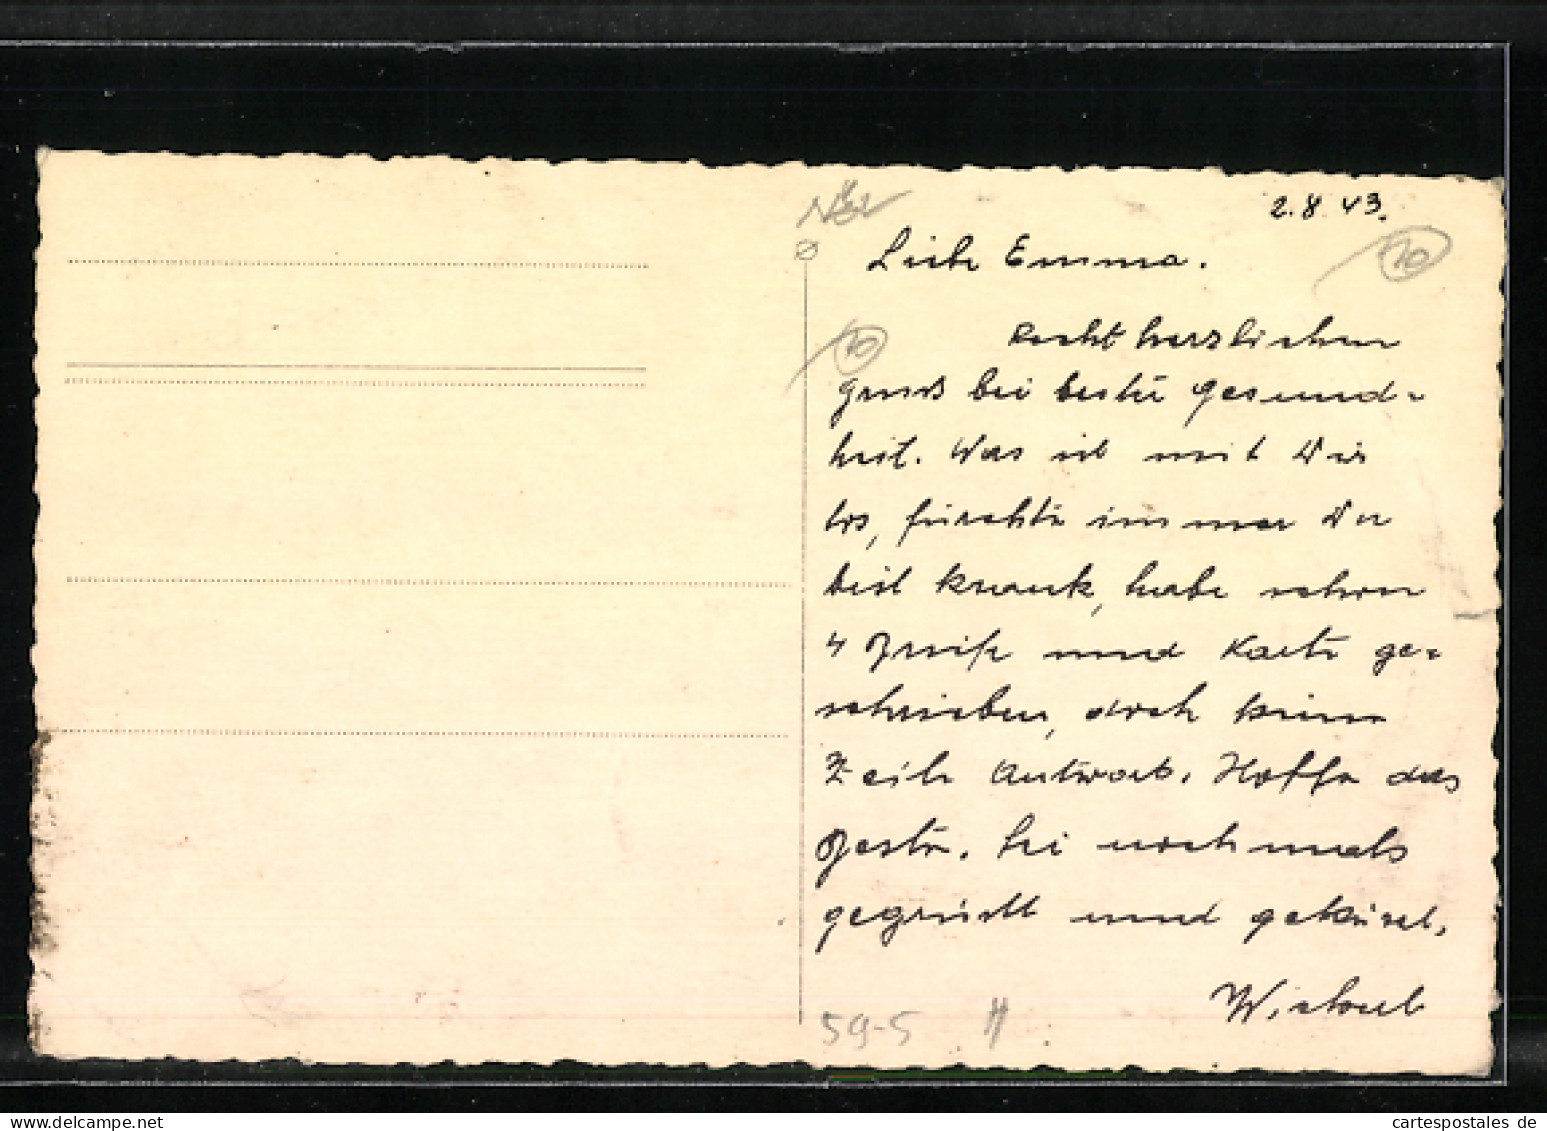 2.8.43.
Liebe Emma.
Recht herzlichen
Gruß bei beste Gesund-
heit. Was ist mit Dir
los, fürchte immer Du
bist krank, habe schon
4 Briefe und Karte ge-
schrieben, doch keine
Zeile Antwort. Hoffe das
Beste. Sei nochmals
gegrüßt und geküsst.
10
10
59-5
cartespostales de